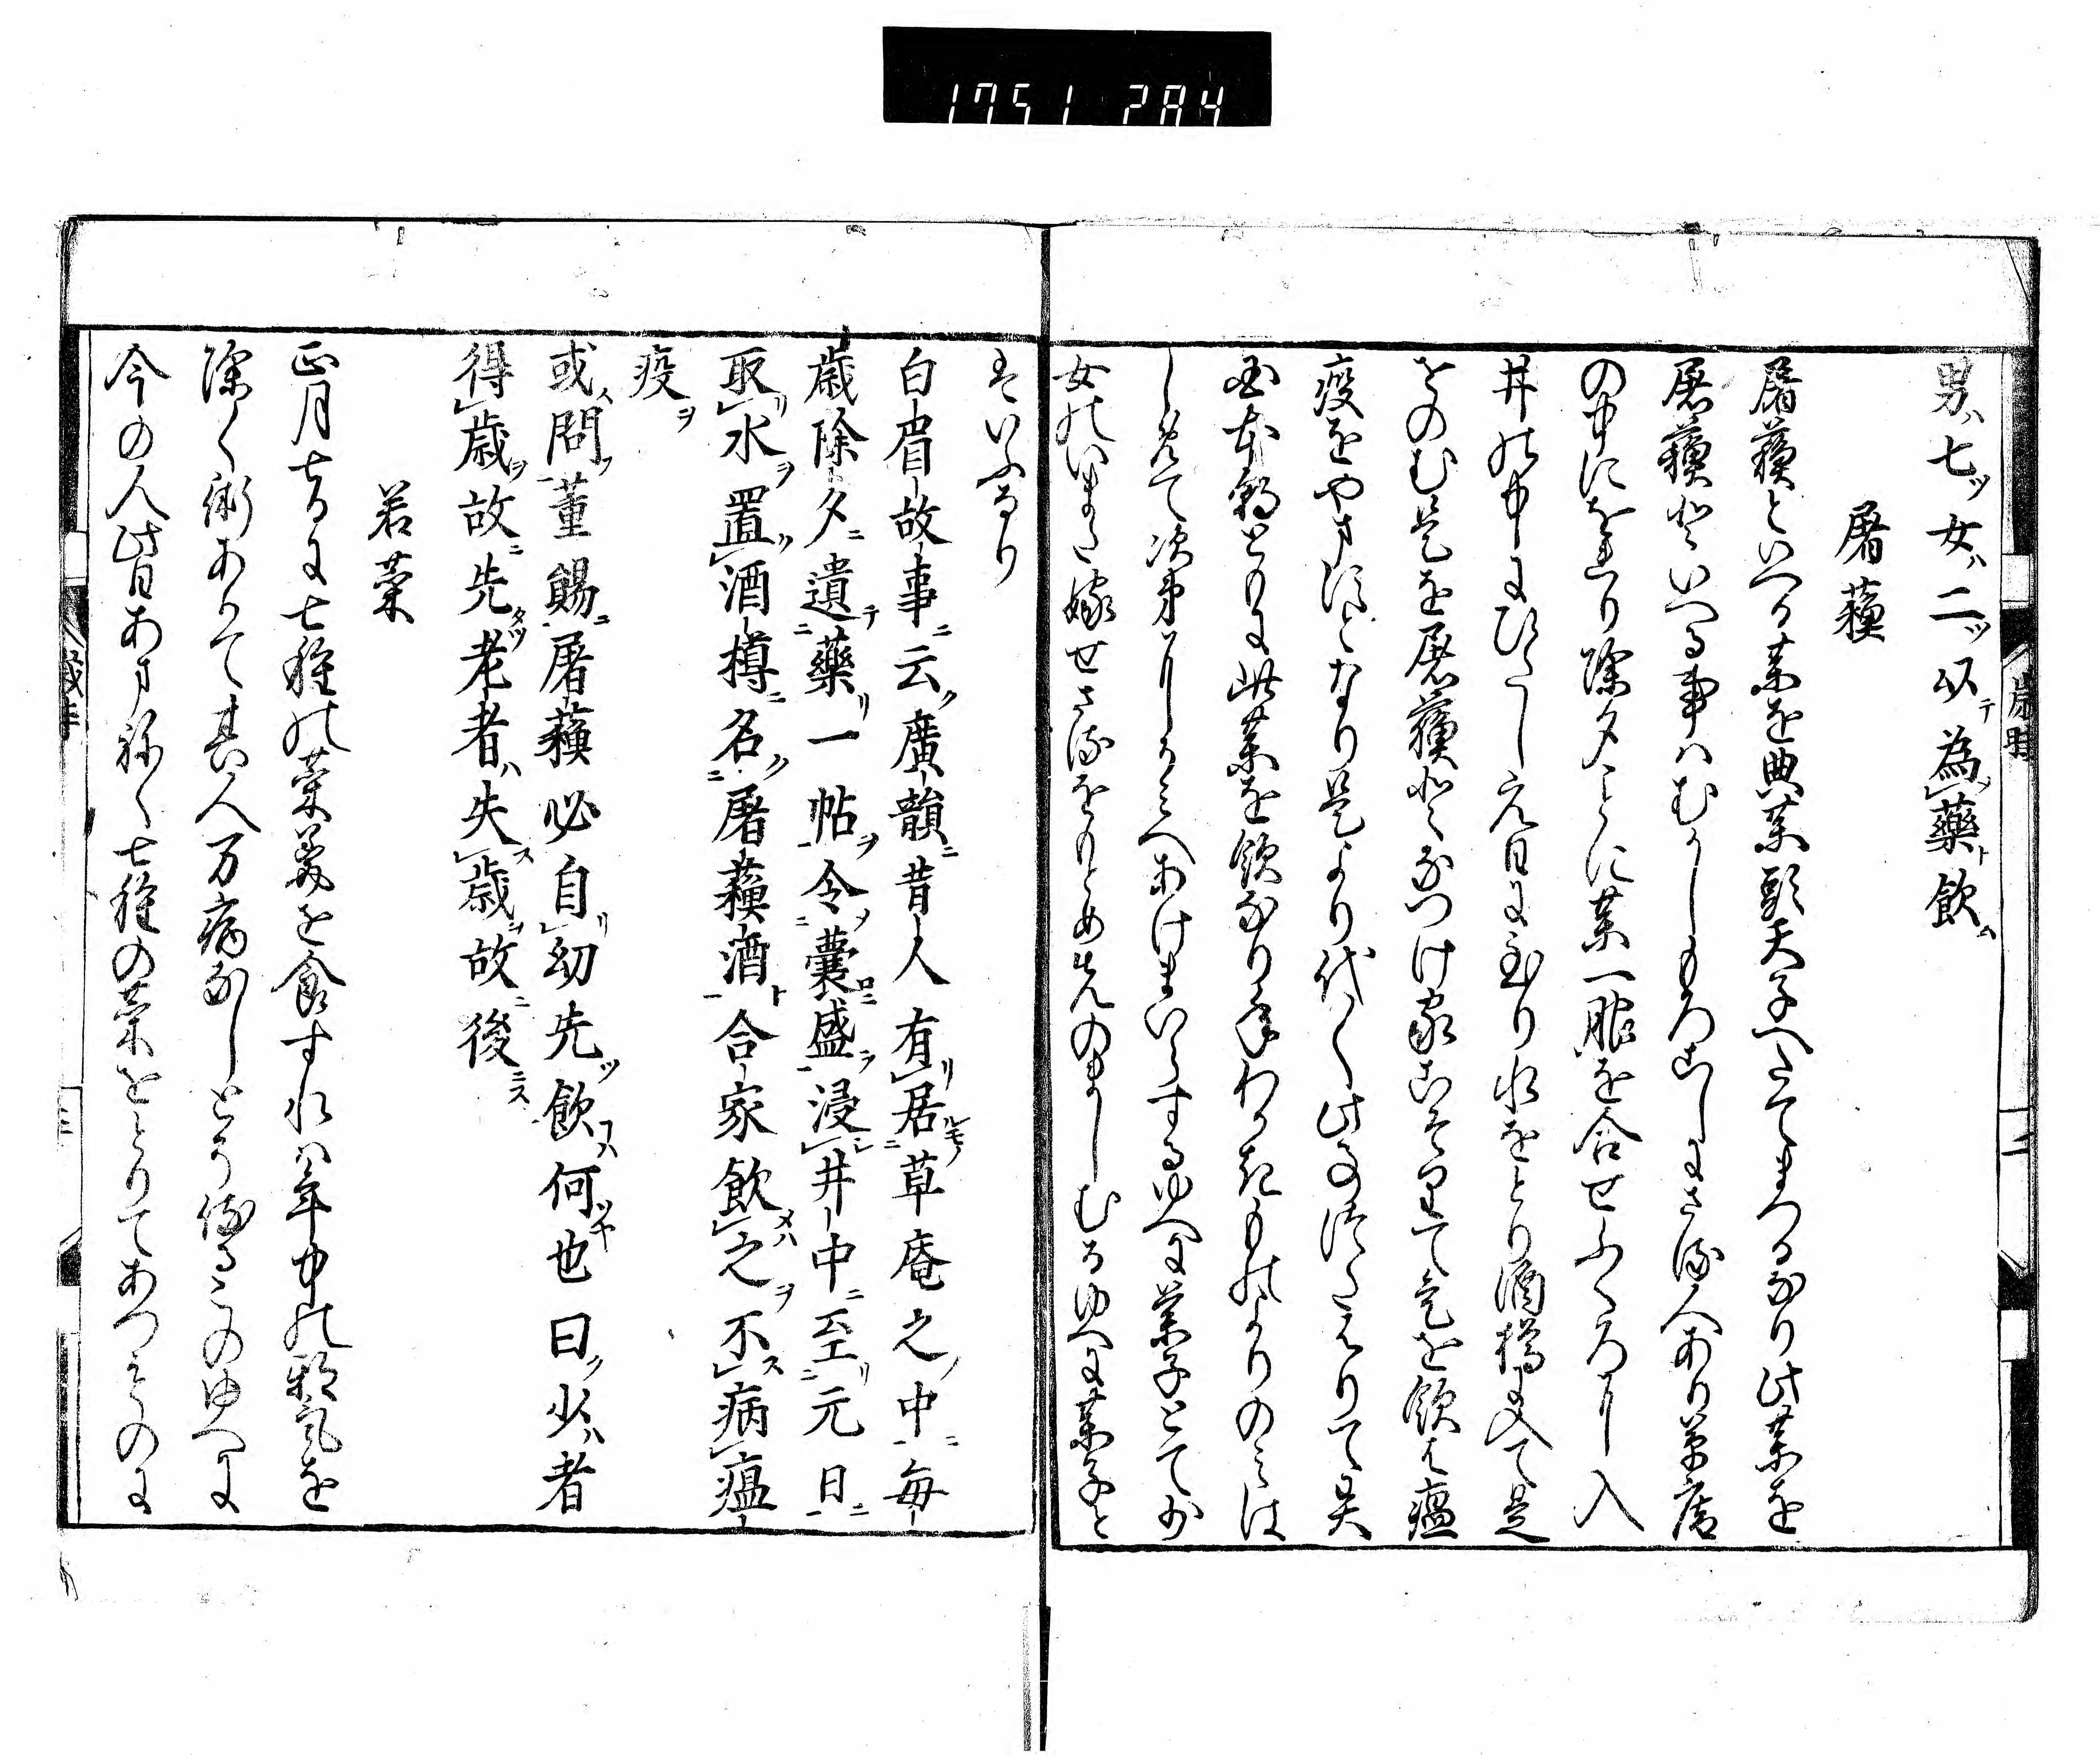 1751 284
男ハ七ッ女ハ二ッ以テ為藥ト飲ム
屠蘓
屠蘓といへる薬を典薬頭天子へたてまつるなり此薬を
屠蘓といへる事はむかしもろこしにさる人あり草庵
の中にをり除夕ことに薬一服を合せふくろに入
井の中にひたし元日に至り水をとり酒樽に入て是
をのむ是を屠蘓となつけ家こそりて是を飲は瘟
疫をやますとなり是より代々此事つたはりて異
国本朝ともに此薬を飲なり年わかきものよりのみは
しめて次第にとしうへあけまいらするゆへに薬子とて少
女のいまた嫁せさるをもとめ先のましむるゆへに薬子と
はいふなり
白眉故事ニ云ク廣韻ニ昔人有リ居ルモノ草庵之ノ中ニ毎
歳除夕ニ遺テ藥リ一帖ヲ令メ囊ロニ盛ラ浸シ井中ニ至リ元日ニ
取リ水ヲ置ク酒樽ニ名ク屠蘓酒ト合家飲メハ之ヲ不ス病瘟
疫ヲ
或人問フ董勛ニ屠蘓必自リ幼先ツ飲コハ何ッヤ也曰ク少ハ者
得歳ヲ故ニ先タツ老者ハ失ス歳ヲ故ニ後ニス
若菜
正月七日に七種の菜羹を食すれは年中の邪気を
除く術ありて其人万病なしとかや侍るこのゆへに
今の人此日あまねく七種の菜をとりてあつものに
歳時
二